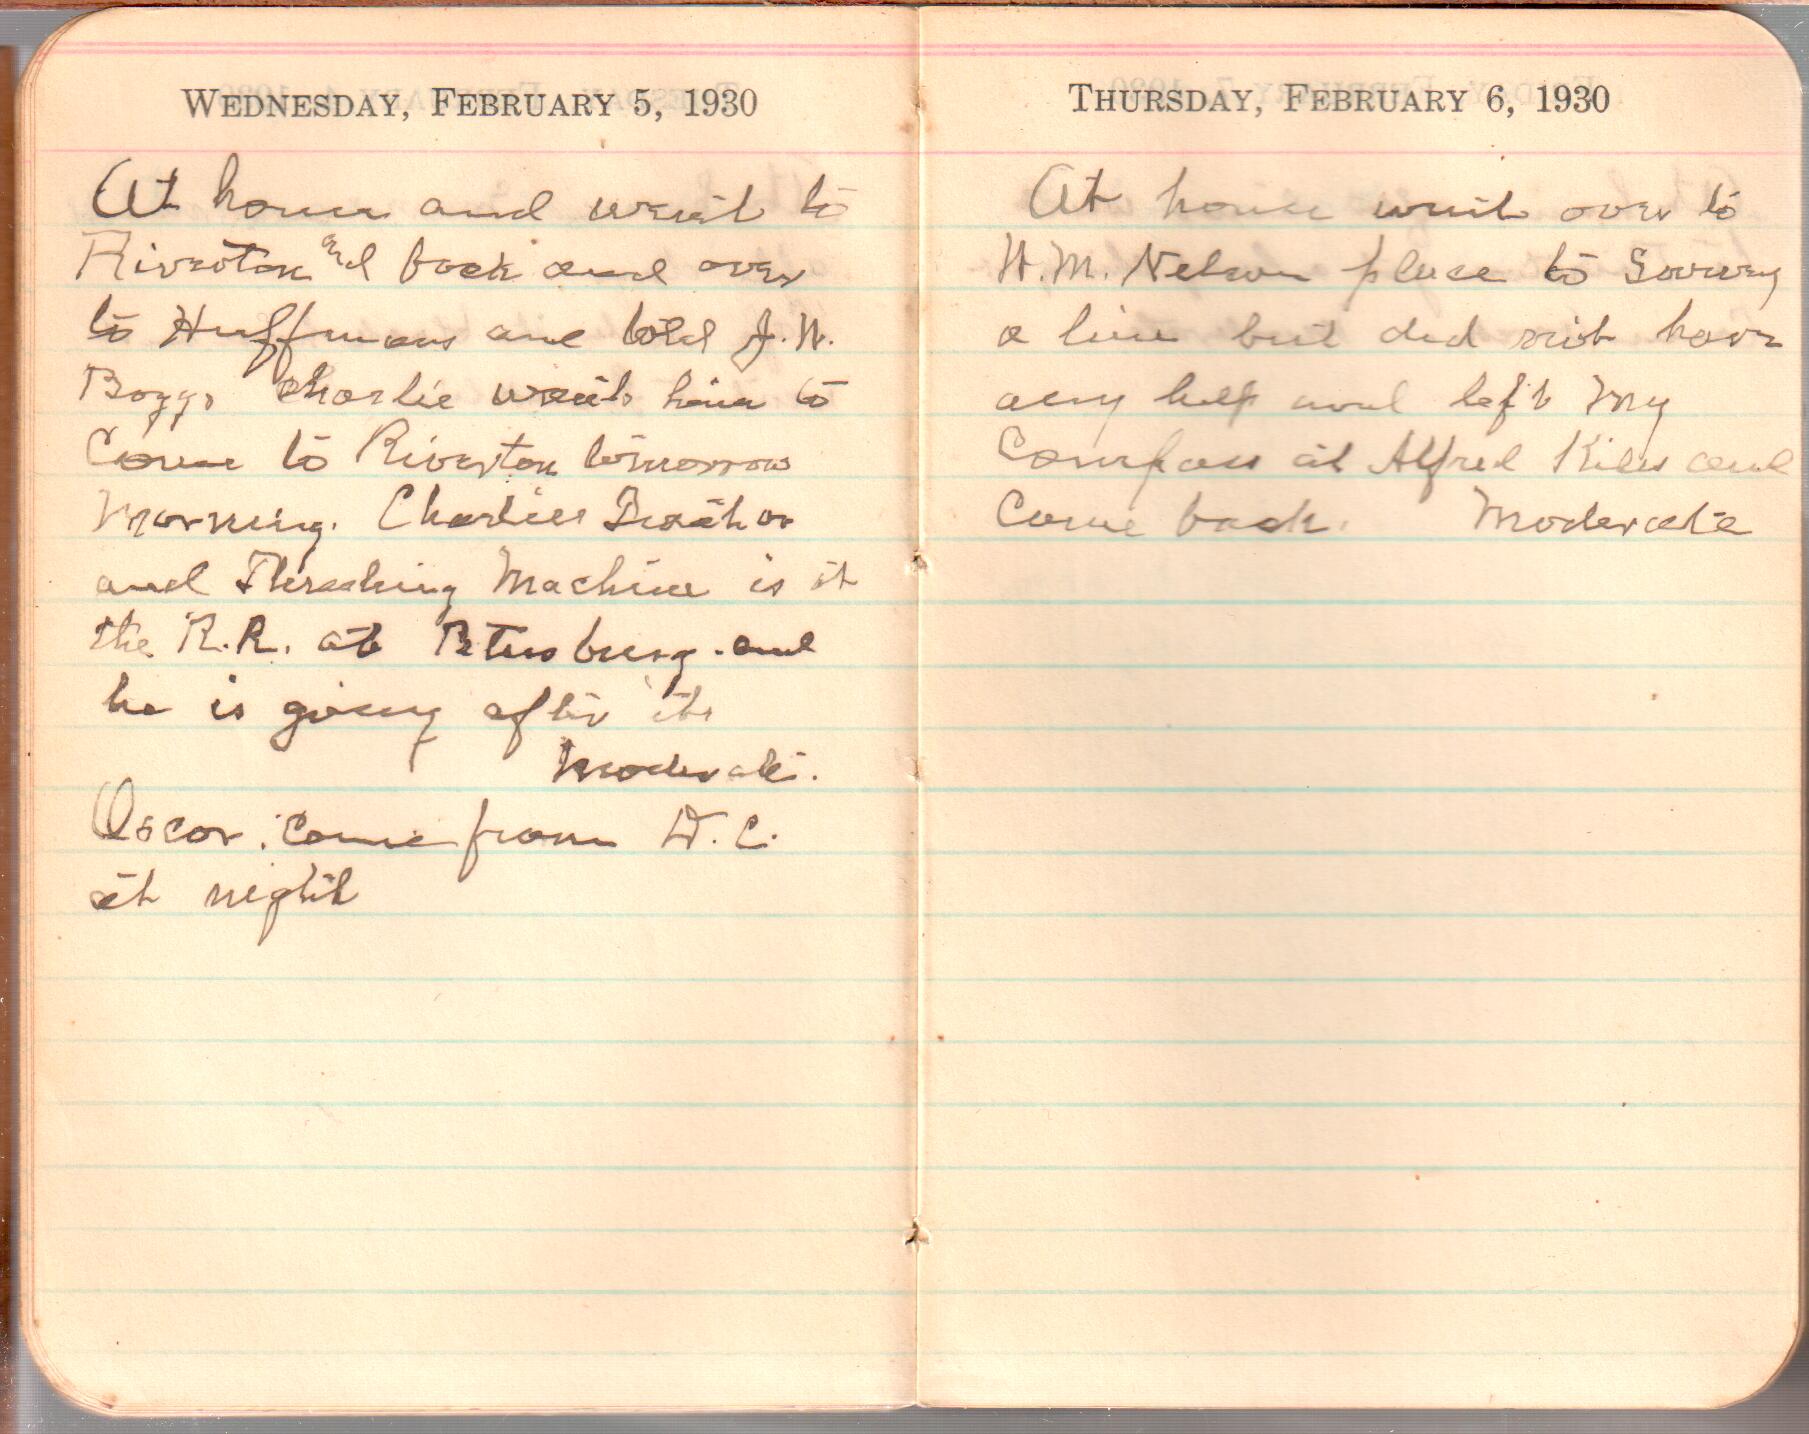 WEDNESDAY, FEBRUARY 5, 1930
At home and went to
Riverton and back and over
to Huffmans and told J.W.
Boggs Charlie wants him to
Come to Riverton tomorrow
Morning. Charlies
and Thrashing Machine is at
the R.R. at Petersburg. and
he is going after it
Moderate.
Oscar. Come from D.C.
at night
THURSDAY, FEBRUARY 6, 1930
At home went over to
H.M. Nelson place to
a line but did not have
any help and left My
Compass at Alfred and
Come back. Moderate